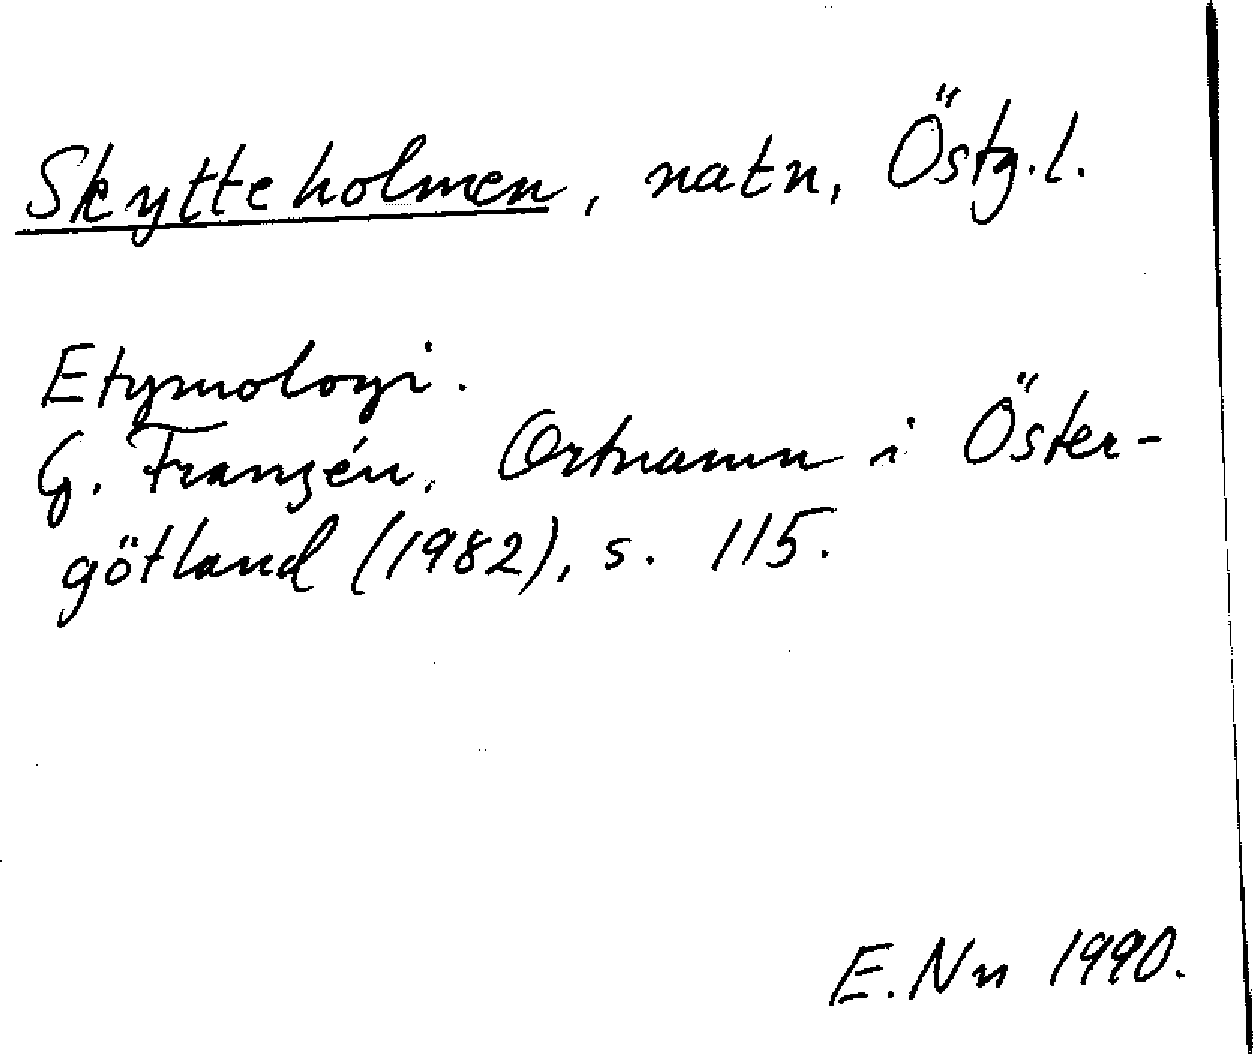 Skytteholmen, natn, Östg.l.
Etymologi.
G. Franzén, Ortnamn i Öster-
götland (1982), s. 115.
E. Nn 1990.